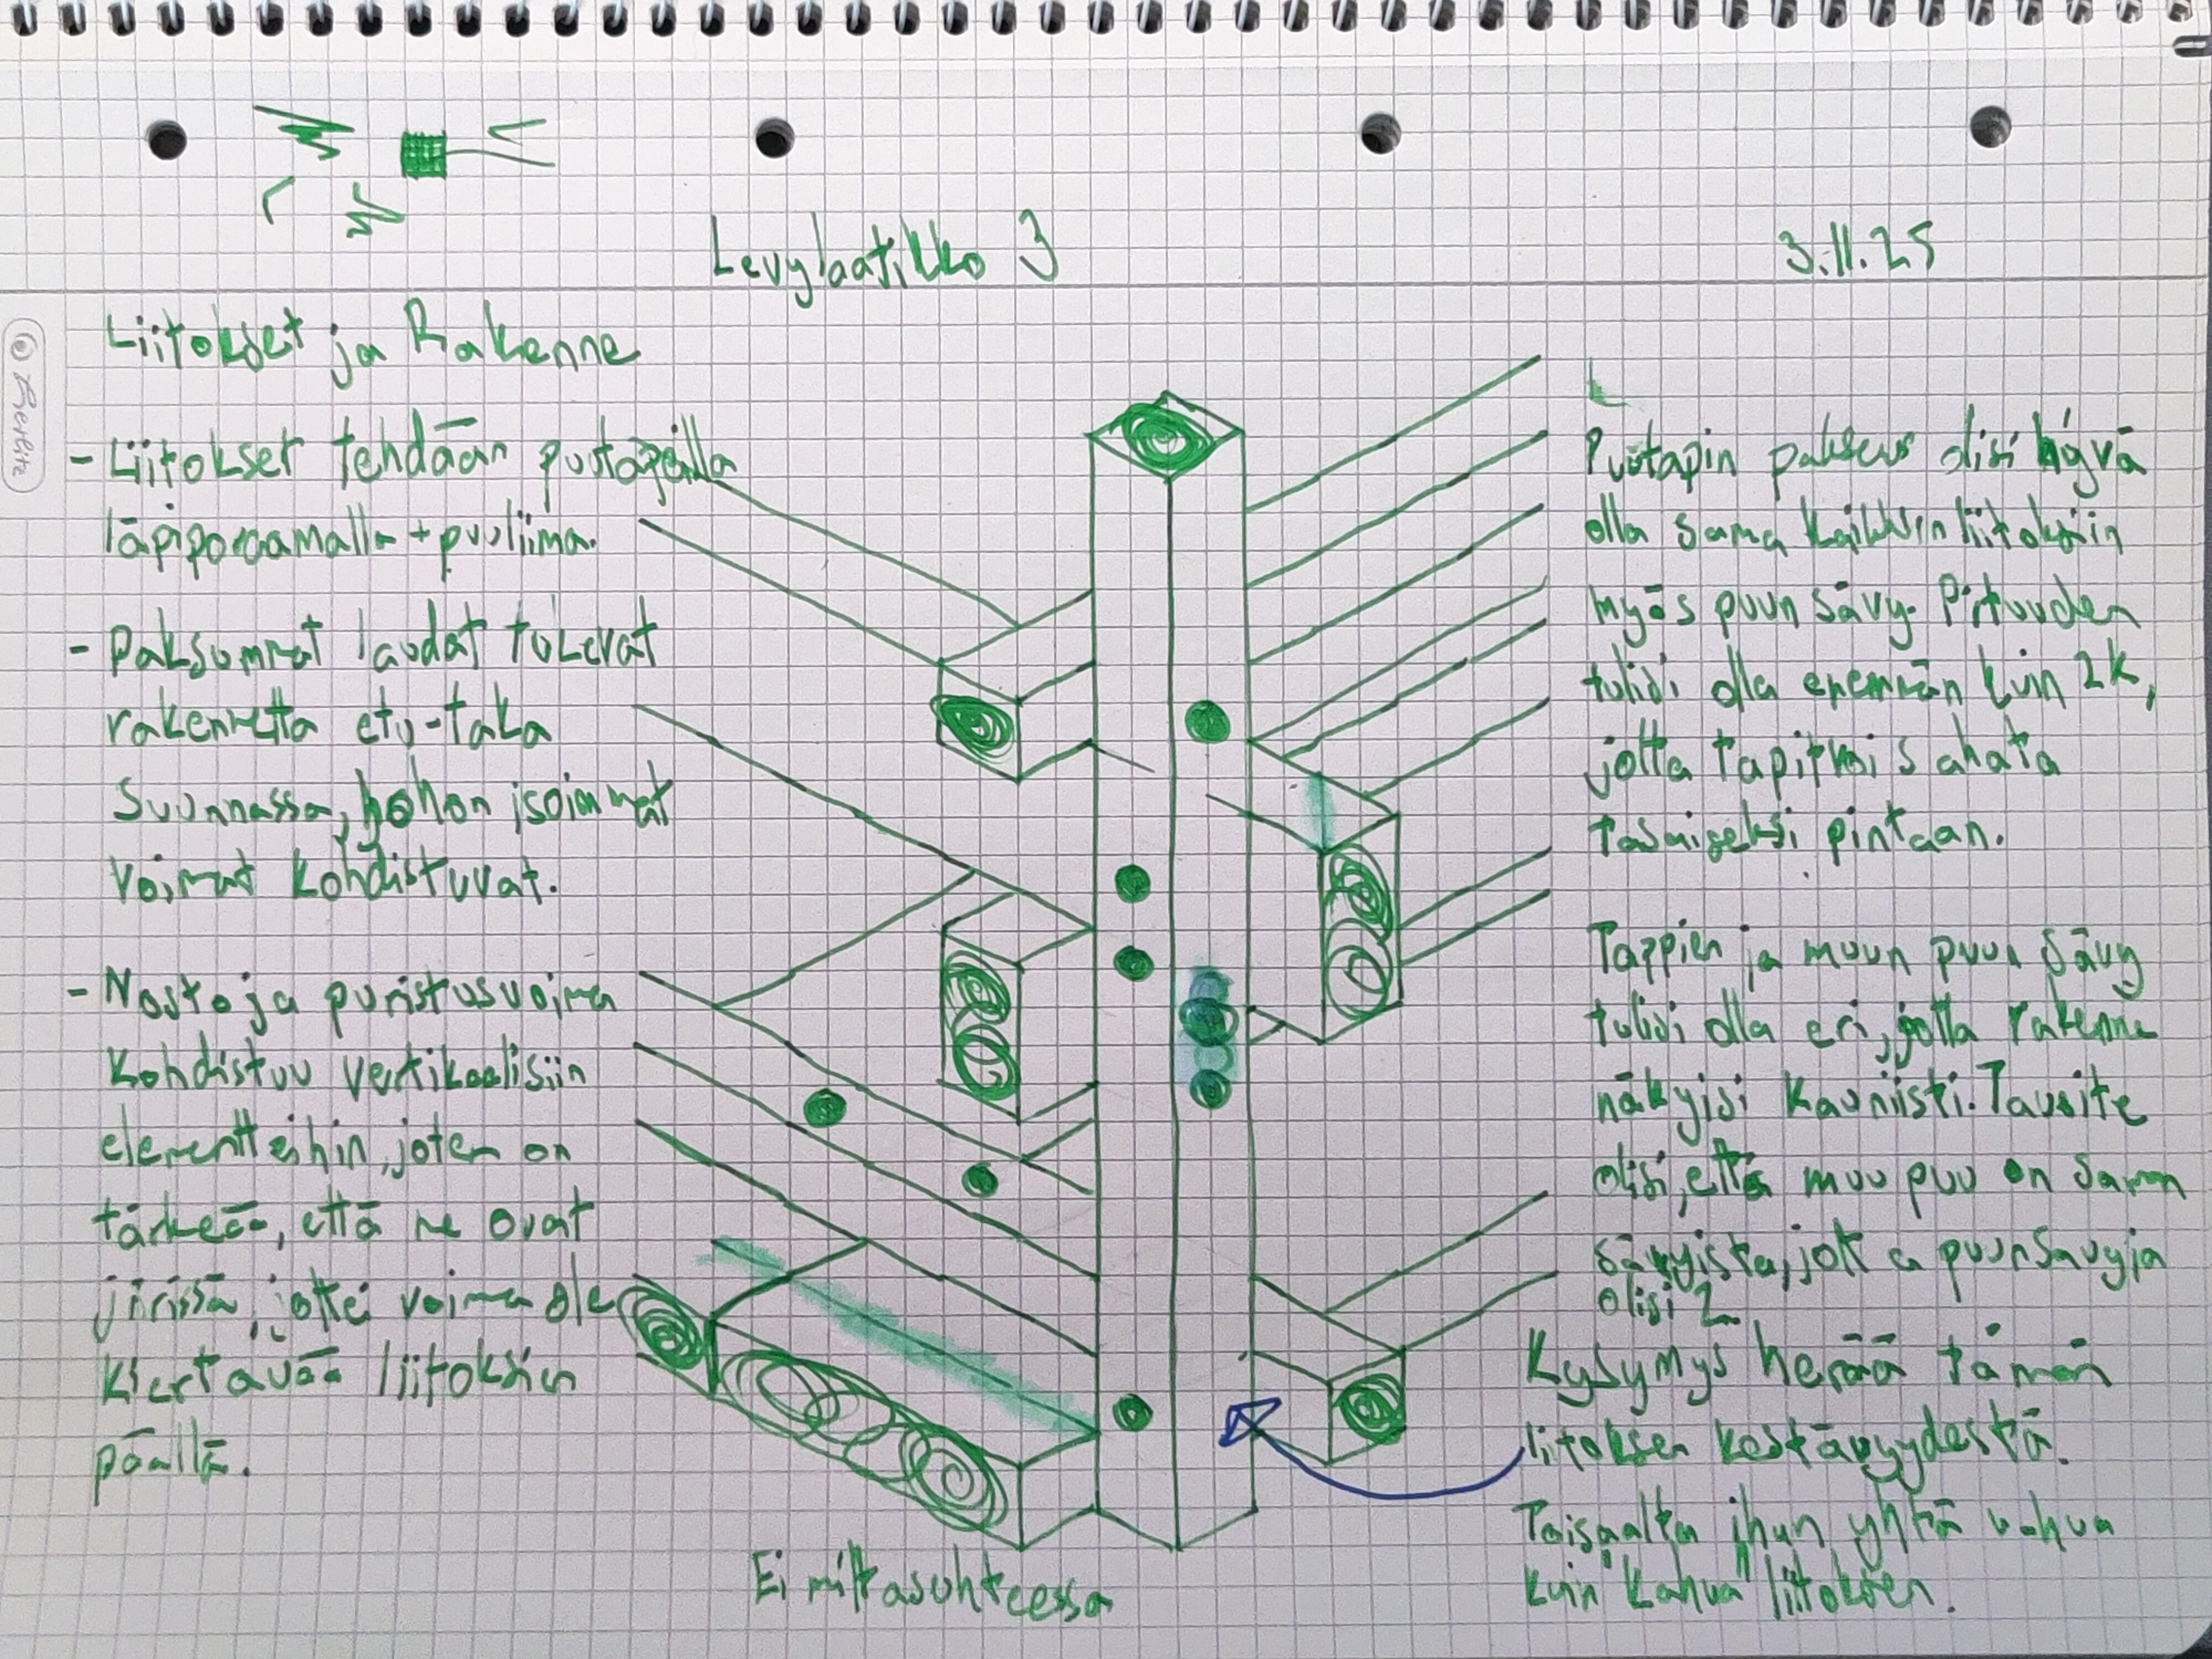 Levylaatikko 3
3.11.25
Liitokset ja Rakenne
- Liitokset tehdään puutapeilla
läpiporaamalla + puuliima.
- Paksummat laudat tukevat
rakennetta etu-taka
suunnassa, johon isoimmat
voimat kohdistuvat.
- Nosto ja puristusvoima
kohdistuu vertikaalisiin
elementteihin, joten on
tärkeää, että ne ovat
jiirissä, jottei voima ole
kiertävää liitoksien
päällä.
Puutapin paksuus olisi hyvä
olla sama kaikkiin liitoksiin
myös puun sävy. Pituuden
tulisi olla enemmän kuin 2k,
jotta tapit voi sahata
tasaiseksi pintaan.
Tappien ja muun puun sävy
tulisi olla eri, jotta rakenne
näkyisi kauniisti. Tavoite
olisi, että muu puu on saman
sävyistä, jotta puunsävyjä
olisi 2
Kysymys herää tämän
liitoksen kestävyydestä.
Toisaalta ihan yhtä vahva
kuin "kahva" liitoksen.
Ei mittasuhteessa
Herlitz